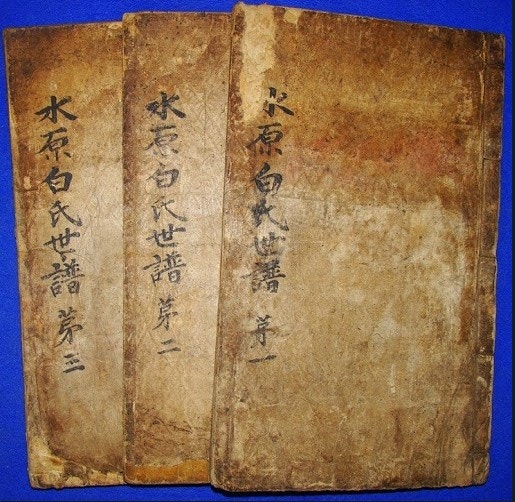 水原白氏世譜 第一
水原白氏世譜 第二
水原白氏世譜 第三